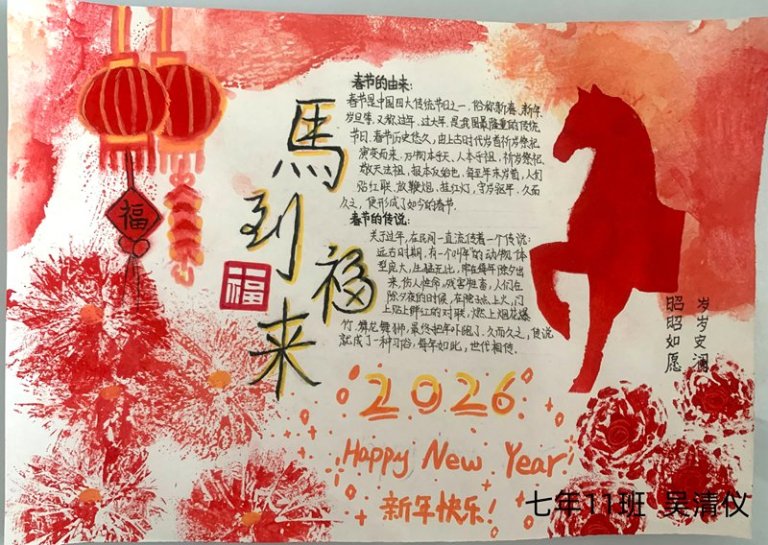 春节的由来:
春节是中国四大传统节日之一,俗称新春、新年、
岁旦等,又称过年、过大年,是我国最隆重的传统
节日.春节历史悠久,由上古时代岁首祈岁祭祀
演变而来.万物本乎天,人本乎祖,祈岁祭祀、
敬天法祖,报本反始也.每至年末岁首,人们
贴红联、放鞭炮、挂红灯、守岁驱年.久而
久之,便形成了如今的春节.
春节的传说:
关于过年,在民间一直流传着一个传说:
远古时期,有一个叫年的动物,体
型庞大,生猛无比,常在每年除夕出
来,伤人性命,残害牲畜,人们在
除夕夜的时候,在院子点上火,门
上贴上鲜红的对联,燃上烟花爆
竹,舞龙舞狮,最终把年吓跑了.久而久之,传说
就成了一种习俗,每年如此,世代相传.
馬到福来
福
福
岁岁安澜
昭昭如愿
2026
Happy New Year!
新年快乐!
七年11班 吴清仪